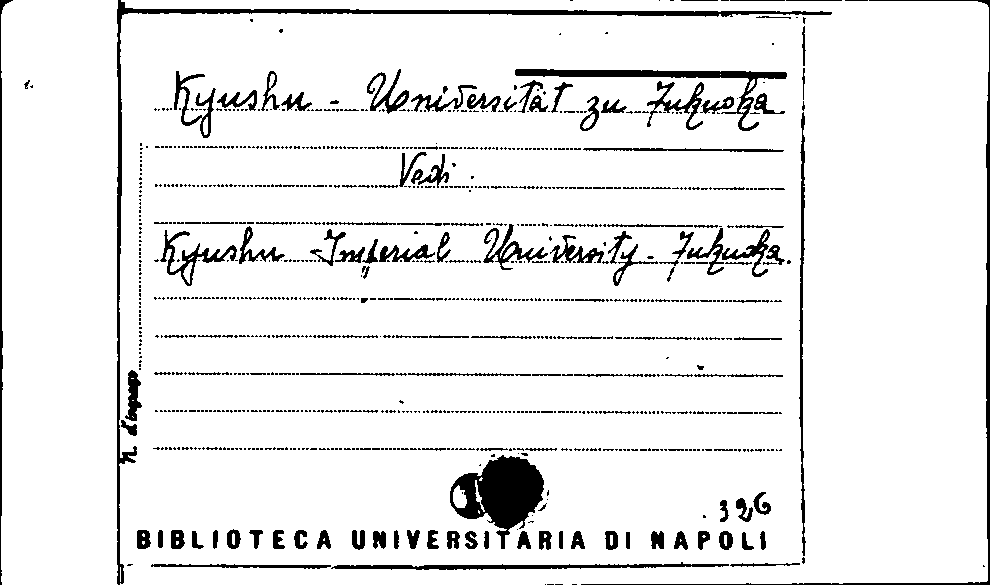 Kyushu - Universität zu Fukuoka.
Vedi.
Kyushu - Imperial University - Fukuoka.
N. d'ingresso
326
BIBLIOTECA UNIVERSITARIA DI NAPOLI